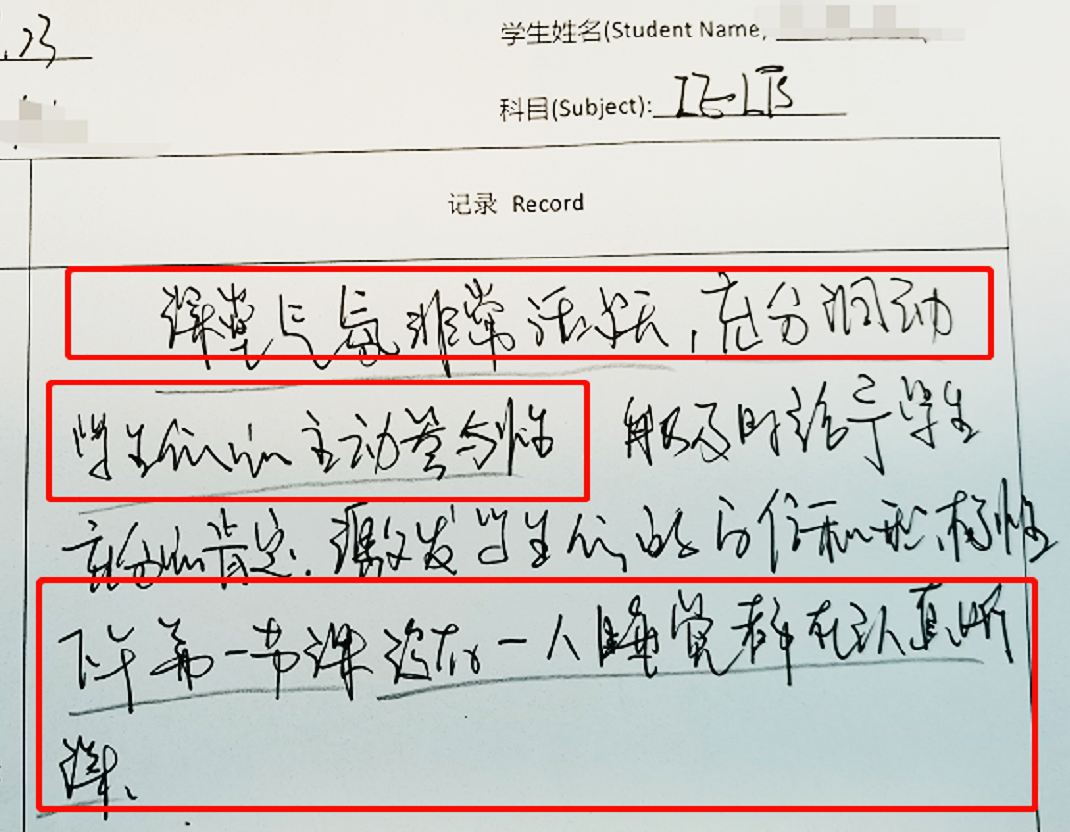 .23
学生姓名(Student Name,
科目(Subject): IELTS
记录 Record
课堂气氛非常活跃，充分调动
学生们的主动参与性 能及时给予学生
充分的肯定.激发学生们的自信和积极性
下午第一节课没有一人睡觉都在认真听
课.